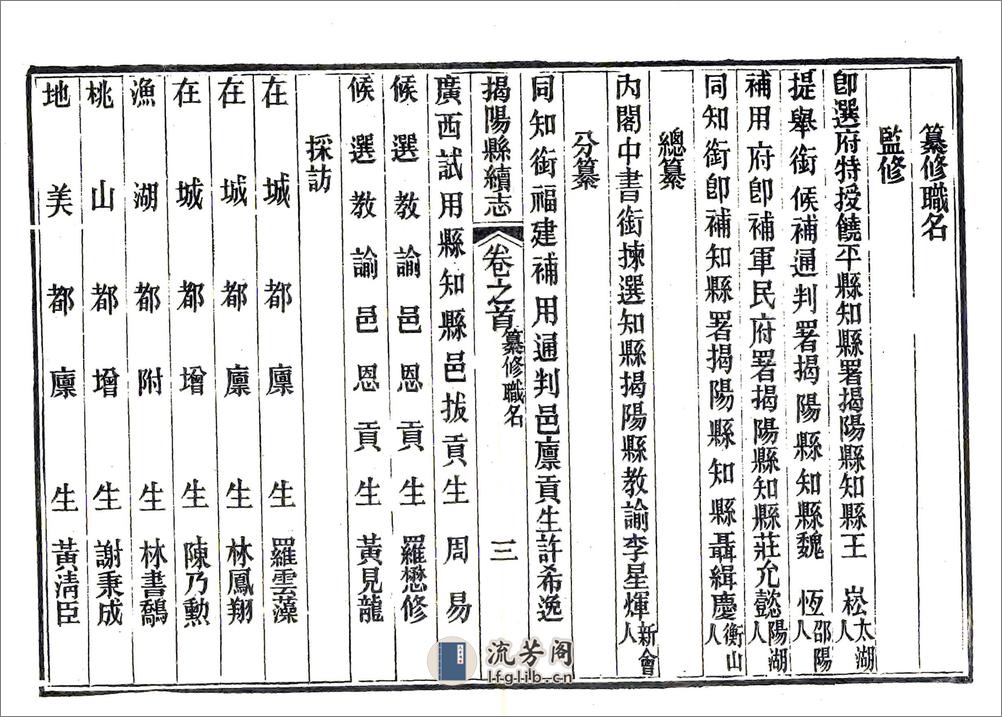 纂修職名
監修
卽選府特授饒平縣知縣署揭陽縣知縣王　崧太湖人
提舉銜候補通判署揭陽縣知縣魏　恆邵陽人
補用府卽補軍民府署揭陽縣知縣莊允懿陽湖人
同知銜卽補知縣署揭陽縣知縣聶緝慶衡山人
總纂
內閣中書銜揀選知縣揭陽縣教諭李星煇新會人
分纂
同知銜福建補用通判邑廪貢生許希逸
揭陽縣續志　卷之首　纂修職名　三
廣西試用縣知縣邑拔貢生周易
候選教諭邑恩貢生羅懋修
候選教諭邑恩貢生黃見龍
採訪
在城都廪生羅雲藻
在城都廪生林鳳翔
在城都增生陳乃勲
漁湖都附生林書鷸
桃山都增生謝秉成
地美都廪生黃淸臣
流芳阁
lfglib.cn